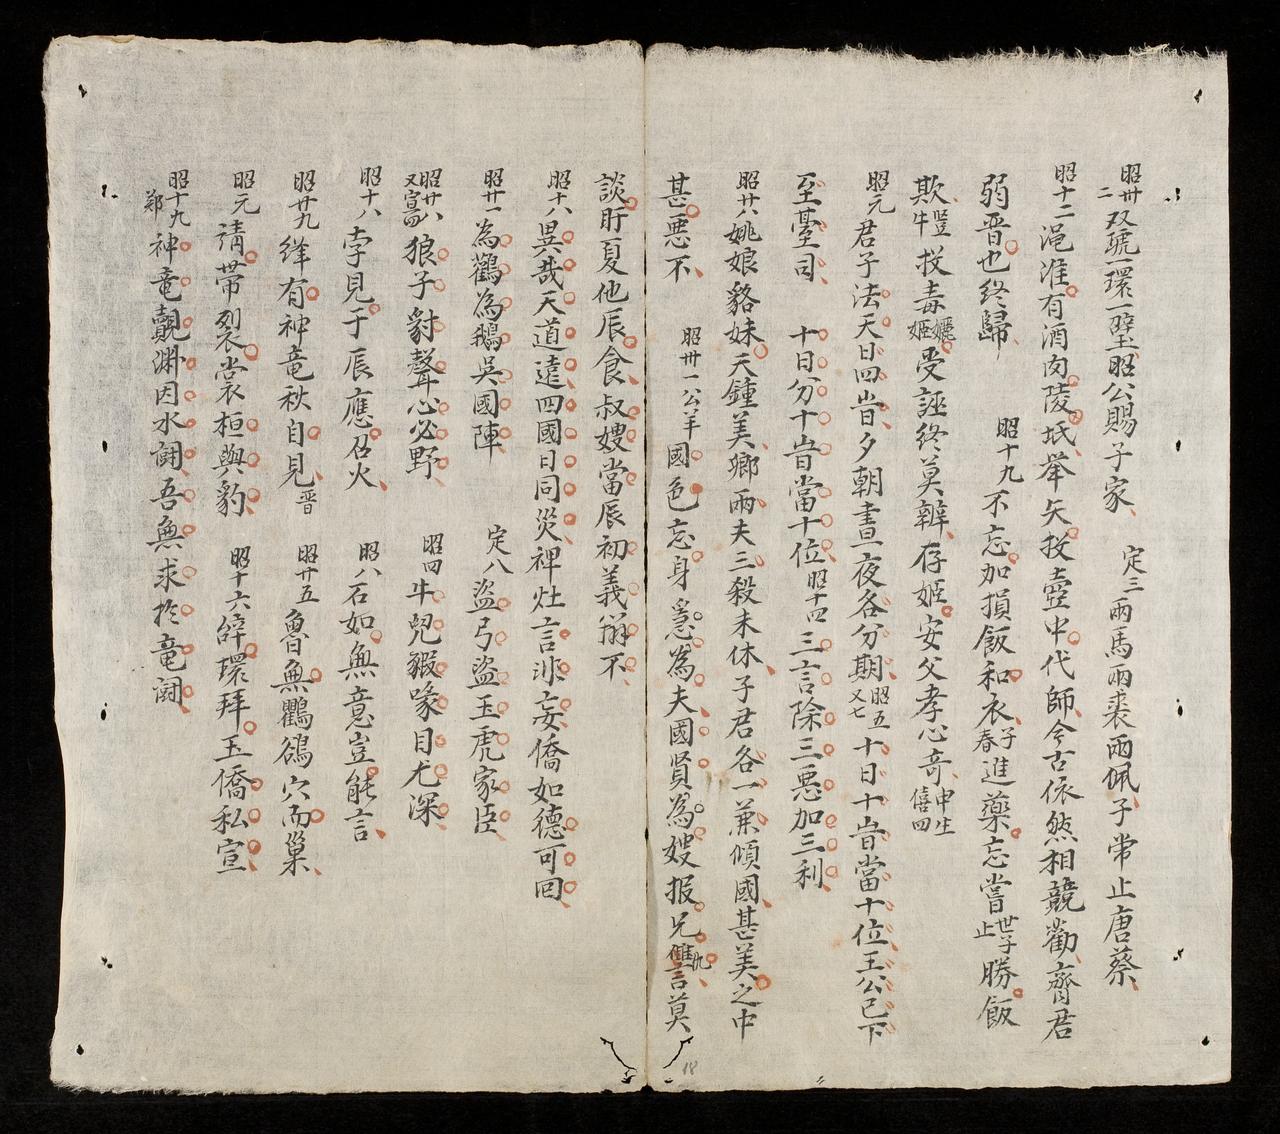 昭卅二双琥一環一璧昭公賜子家 定三兩馬兩裘兩佩子常止唐蔡
昭十二渑淮有酒肉陵坻举矢投壺中代師今古依然相競勸齊君
弱晋也終歸 昭十九不忘加損飯和衣子春進藥忘嘗世子止勝飯
欺豎牛投毒孋姬受誣終莫辨存姬安父孝心奇申生僖四
昭元君子法天日四旹夕朝晝夜各分期昭五又七十日十旹當十位王公已下
至臺司 十日分十旹當十位昭十四三言除三悪加三利
昭廿八姚娘貉妹天鍾美鄉兩夫三殺未休子君各一兼傾國甚美之中
甚悪不 昭卅一公羊國色忘身爰為夫國賢為嫂报兄讐仇莫
談盱夏他辰食叔嫂當辰初義辯不
昭十八異哉天道遠四國日同災裨灶言非妄僑如德可回
昭廿一為鸛為鵝吳國陣 定八盜弓盜玉虎家臣
昭廿八又宣四狼子豺聲心必野 昭四牛兒豭喙目尤深
昭十八孛見于辰應召火 昭八石如無意豈能言
昭廿九絳有神竜秋自見晋 昭廿五魯無鸜鵒穴而巢
昭元請帶裂裳桓與豹 昭十六辤環拜玉僑私宣
昭十九鄭神竜覿渊因水鬪吾無求於竜鬪
18